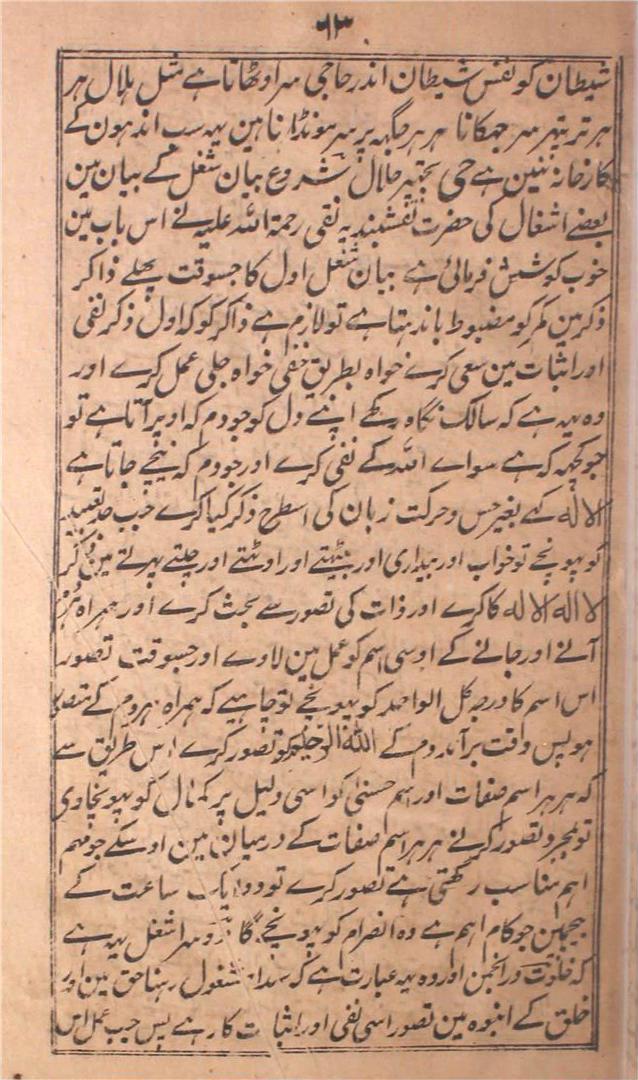 ٦٣
شیطان کو نفس شیطان اندر حاجی سر اوٹھاتا ہے مثل ہلال ہر
ہر تر تیہر سر جھکانا ہر ہر جگہہ پر سر مونڈانا ہین یہہ سب اندہون کے
کارخانہ ننین ہے حی جلال شروع بیان شغل کے بیان مین
بعضے اشغال کی حضرت نقشبندیہ نقی رحمة اللہ علیہ نے اس باب مین
خوب کوشش فرمائی ہے بیان شغل اول کا جسوقت پہلے ذاکر
ذکر مین کمر کو مضبوط باندہتا ہے تو لازم ہے ذاکر کو کہ اول ذکر نفی
اور اثبات مین سعی کرے خواہ بطریق خفی خواہ جلی عمل کرے اور
وہ یہہ ہے کہ سالک نگاہ رکھے اپنے دل کو جو دم کہ اوپر آتا ہے تو
جو کچہہ کہ ہے سواے اللہ کے نفی کرے اور جو دم کہ نیچے جاتا ہے
الا لہ کہے بغیر حس و حرکت زبان کی اسطرح ذکر کیا کرے جب حد
کو پہونچے تو خواب اور بیداری اور بیٹہتے اور اوٹہتے اور چلتے پہرتے مین ذکر
لا الہ لا لہ کا کرے اور ذات کی تصور سے بحث کرے اور ہمراہ
آنے اور جانے کے اوسی اسم کو عمل مین لاوے اور جسوقت تصور
اس اسم کا درجہ کل الواحد کو پہونچے تو چاہیے کہ ہمراہ ہر دم کے متصل
ہو پس وقت برآمد دم کے اللہ کو تصور کرے اس طریق سے
کہ ہر ہر اسم صفات اور اسم حسنیٰ کو اسی دلیل پر کمال کو پہونچاوی
تو بمجرد تصور کرنے ہر ہر اسم صفات کے درمیان مین اوسکے جو مہم
اہم مناسب رکہتی ہے تصور کرے تو دو ایک ساعت کے
بیچ مین جو کام اہم ہے وہ انصرام کو پہونچے گا دوسرا شغل یہہ ہے
کہ خلوت در انجمن اور وہ یہہ عبارت ہے کہ سدا مشغول رہنا حق مین اور
خلق کے انبوہ مین تصور اسی نفی اور اثبات کا رہے پس جب عمل اس